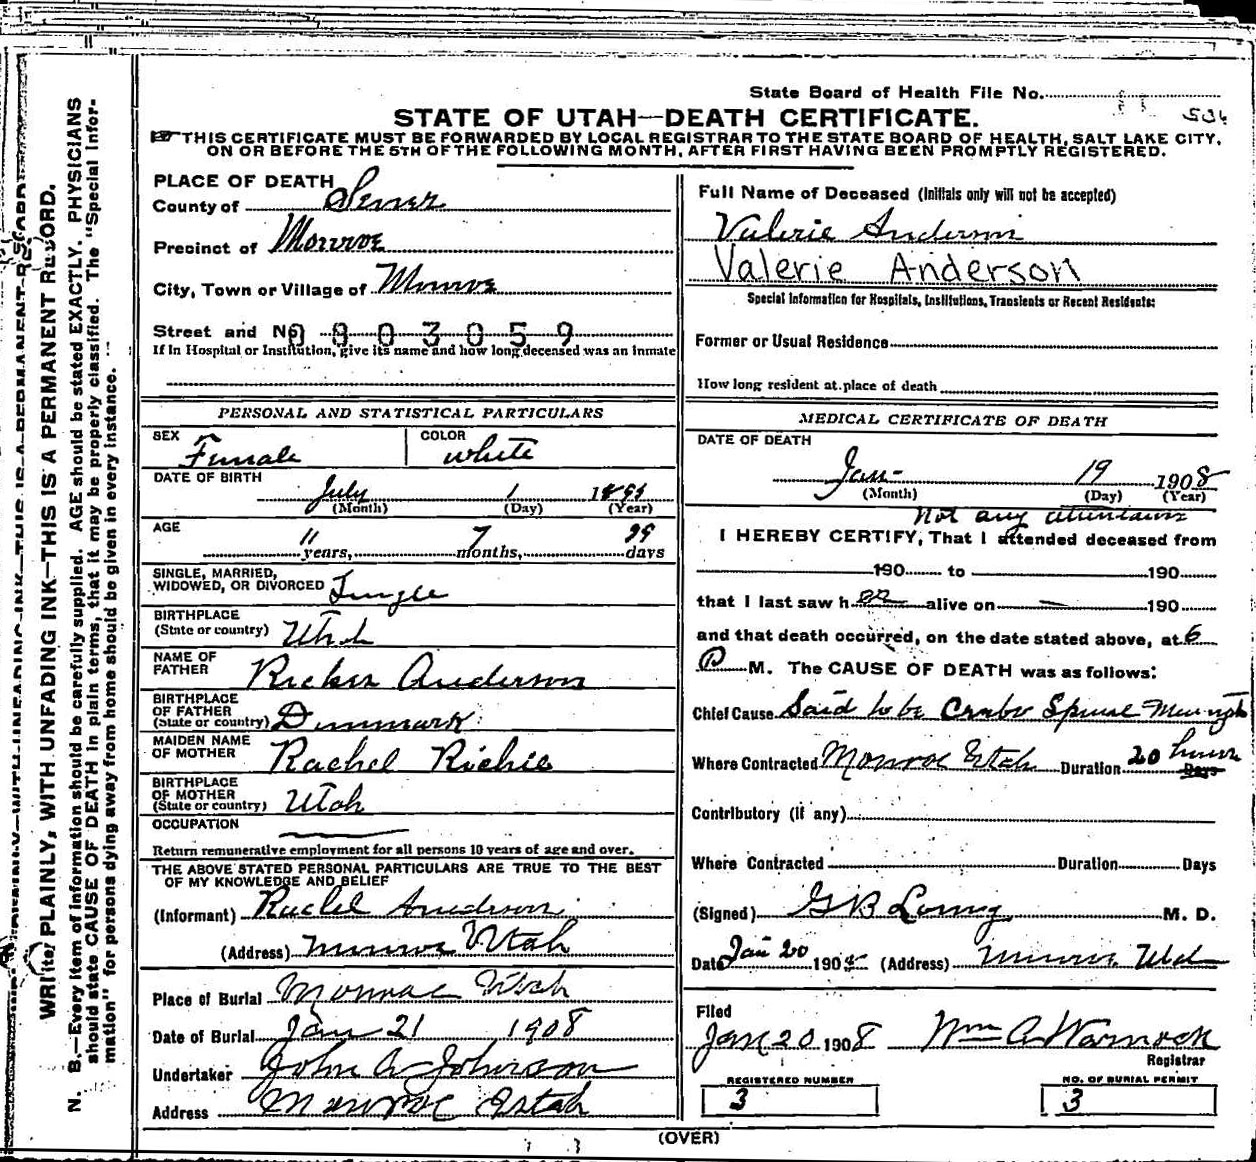 State Board of Health File No. 536
STATE OF UTAH—DEATH CERTIFICATE.
THIS CERTIFICATE MUST BE FORWARDED BY LOCAL REGISTRAR TO THE STATE BOARD OF HEALTH, SALT LAKE CITY,
ON OR BEFORE THE 5TH OF THE FOLLOWING MONTH, AFTER FIRST HAVING BEEN PROMPTLY REGISTERED.
WRITE PLAINLY, WITH UNFADING INK—THIS IS A PERMANENT RECORD.
N. B.—Every item of information should be carefully supplied. AGE should be stated EXACTLY. PHYSICIANS
should state CAUSE OF DEATH in plain terms, that it may be properly classified. The "Special Infor-
mation" for persons dying away from home should be given in every instance.
PLACE OF DEATH
County of Sevier
Precinct of Monroe
City, Town or Village of Monroe
Street and No 0803059
If in Hospital or Institution, give its name and how long deceased was an inmate
PERSONAL AND STATISTICAL PARTICULARS
SEX Female
COLOR white
DATE OF BIRTH
July 1
(Month) (Day) (Year)
AGE
11 years, 7 months, days
SINGLE, MARRIED,
WIDOWED, OR DIVORCED Single
BIRTHPLACE
(State or country) Utah
NAME OF
FATHER Anderson
BIRTHPLACE
OF FATHER
(State or country) Denmark
MAIDEN NAME
OF MOTHER Rachel Richie
BIRTHPLACE
OF MOTHER
(State or country) Utah
OCCUPATION
Return remunerative employment for all persons 10 years of age and over.
THE ABOVE STATED PERSONAL PARTICULARS ARE TRUE TO THE BEST
OF MY KNOWLEDGE AND BELIEF
(Informant) Rachel Anderson
(Address) Monroe Utah
Place of Burial Monroe Utah
Date of Burial Jan 21 1908
Undertaker John A Johnson
Address Monroe Utah
Full Name of Deceased (Initials only will not be accepted)
Valerie Anderson
Valerie Anderson
Special Information for Hospitals, Institutions, Transients or Recent Residents:
Former or Usual Residence
How long resident at place of death
MEDICAL CERTIFICATE OF DEATH
DATE OF DEATH
Jan 19 1908
(Month) (Day) (Year)
Not any attendance
I HEREBY CERTIFY, That I attended deceased from
190 to 190
that I last saw her alive on — 190
and that death occurred, on the date stated above, at 6
P M. The CAUSE OF DEATH was as follows:
Chief Cause Said to be Spinal
Where Contracted Monroe Utah Duration 20 hours Days
Contributory (if any)
Where Contracted Duration Days
(Signed) G B M. D.
Date Jan 20 1908 (Address) Monroe Utah
Filed
Jan 20 1908 Wm A Warnock
Registrar
REGISTERED NUMBER
3
NO. OF BURIAL PERMIT
3
(OVER)